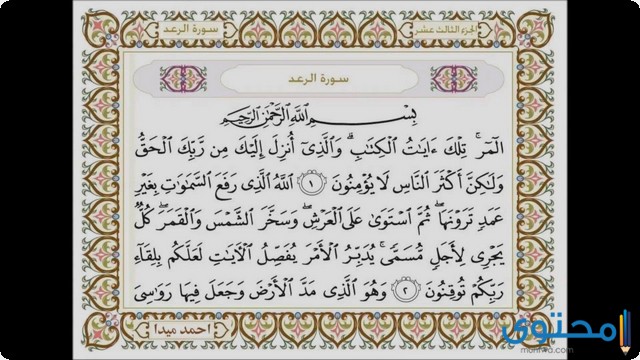 سورة الرعد
الجزء الثالث عشر
سورة الرعد
بِسْمِ اللَّهِ الرَّحْمَٰنِ الرَّحِيمِ
الٓمٓر ۚ تِلْكَ ءَايَٰتُ الْكِتَٰبِ ۗ وَالَّذِىٓ أُنزِلَ إِلَيْكَ مِن رَّبِّكَ الْحَقُّ
وَلَٰكِنَّ أَكْثَرَ النَّاسِ لَا يُؤْمِنُونَ ١ اللَّهُ الَّذِى رَفَعَ السَّمَٰوَٰتِ بِغَيْرِ
عَمَدٍ تَرَوْنَهَا ۖ ثُمَّ اسْتَوَىٰ عَلَى الْعَرْشِ ۖ وَسَخَّرَ الشَّمْسَ وَالْقَمَرَ ۖ كُلٌّ
يَجْرِى لِأَجَلٍ مُّسَمًّى ۚ يُدَبِّرُ الْأَمْرَ يُفَصِّلُ الْآيَٰتِ لَعَلَّكُم بِلِقَآءِ
رَبِّكُمْ تُوقِنُونَ ٢ وَهُوَ الَّذِى مَدَّ الْأَرْضَ وَجَعَلَ فِيهَا رَوَٰسِىَ
احمد ميدا
محتوى
muhtwa.com